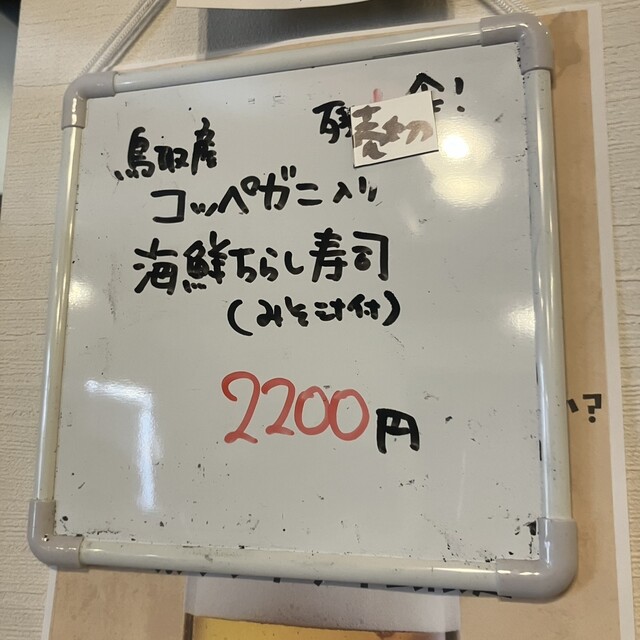 残 食!
売切
鳥取産
コッペガニ入り
海鮮ちらし寿司
(みそ汁付)
2200円
い?